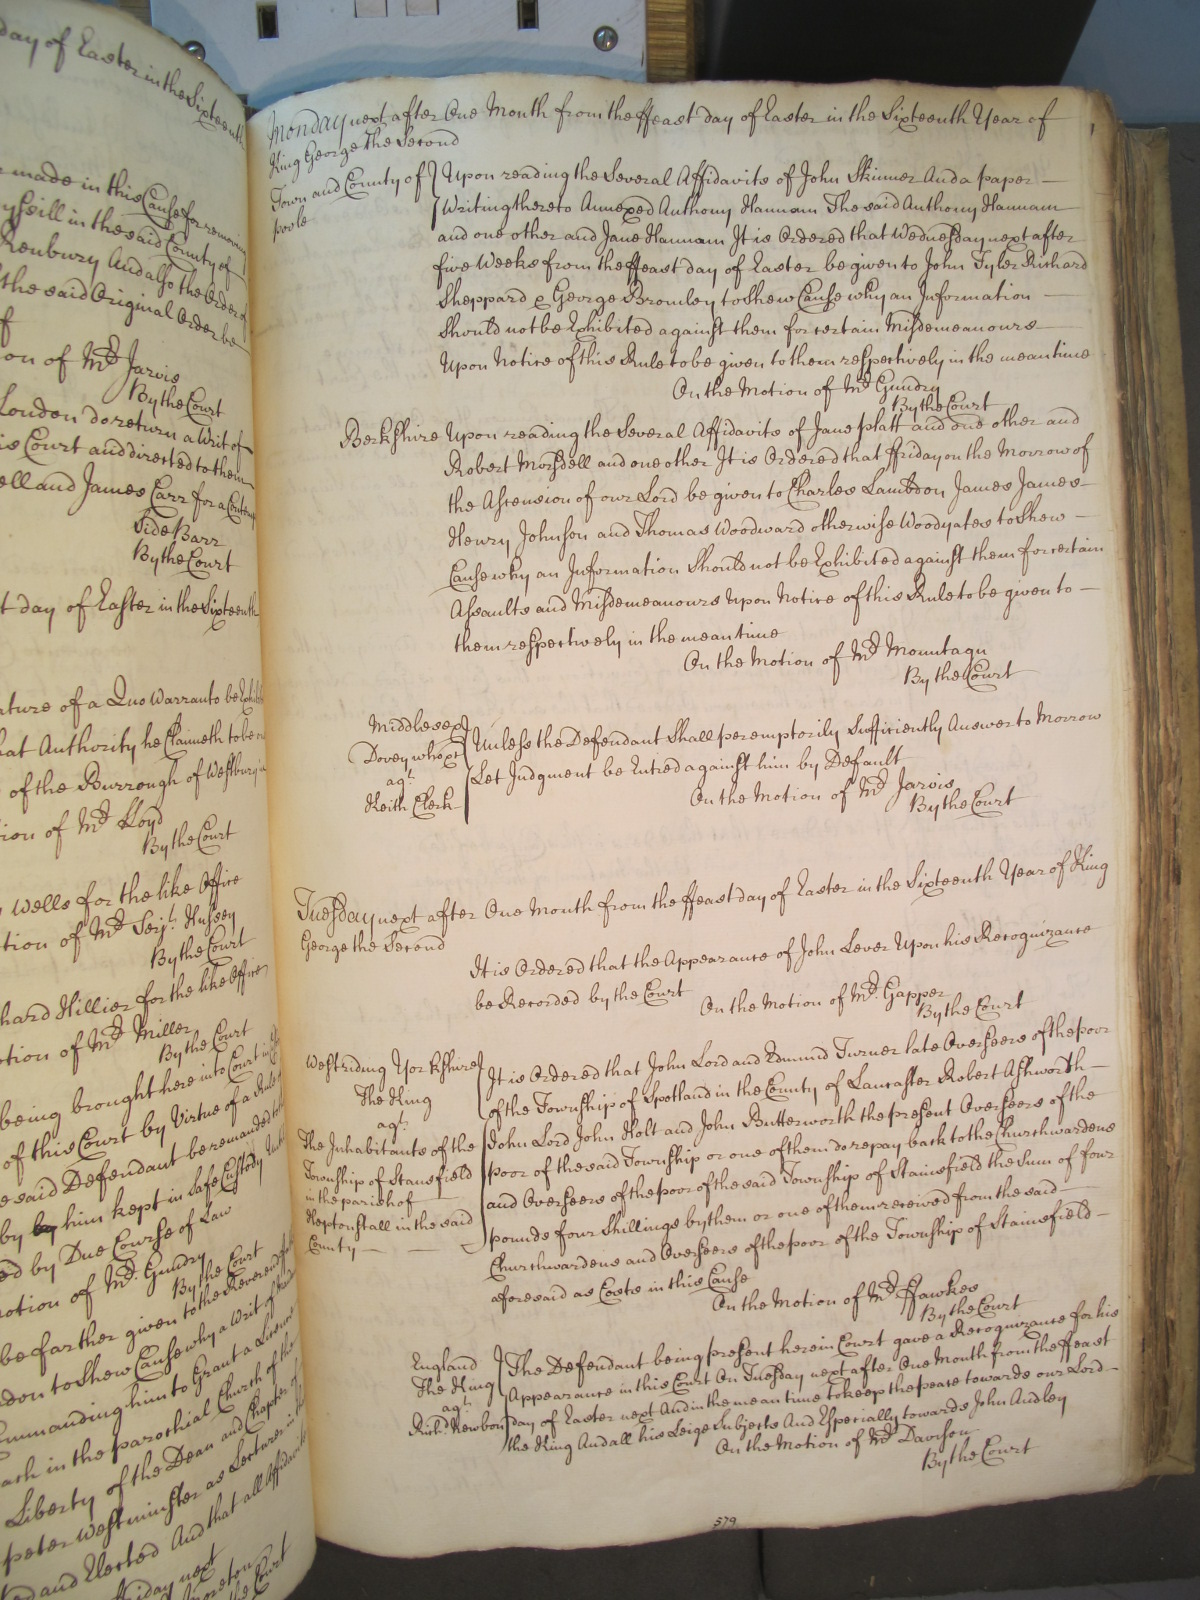 day of Easter in the Sixteenth
made in this Cause for removing
in the said County of
Kenbury And also the Order of
the said Original Order be
of
on of Mr. Jarvis
By the Court
London do return a Writ of
is Court and directed to them
ell and James Carr for a Contemp
Side Barr
By the Court
t day of Easter in the Sixteenth
ature of a Quo Warranto be Exhi
hat Authority he Claimeth to be
of the Burrough of Westbury
ion of Mr. Lloyd
By the Court
Wells for the like Office
tion of Mr. Serjt. Hussey
By the Court
hard Hillier for the like Office
otion of Mr. Miller
By the Court
being brought here into Court
of this Court by Virtue of a Rule
e said Defendant be remanded
by him kept in Safe Custody
ed by Due Course of Law
otion of Mr. Gundry
By the Court
be farther given to the Reverend
den to Shew Cause why a Writ of
ommanding him to Grant a Licence
ach in the parochial Church of the
Liberty of the Dean and Chapter of
peter Westminster as Lecturer in
ed and Elected And that all Affidavits
ffriday next
the Court
Monday next after One Month from the ffeast day of Easter in the Sixteenth Year of
King George the Second
Town and County of
poole
Upon reading the Several Affidavits of John Skinner And a paper
Writing thereto Annexed Anthony Hannam The said Anthony Hannam
and one other and Jane Hannam It is Ordered that Wednesday next after
five Weeks from the ffeast day of Easter be given to John Tyler Richard
Sheppard & George Bromley to Shew Cause why an Information
Should not be Exhibited against them for certain Misdemeanours
Upon Notice of this Rule to be given to them respectively in the mean time
On the Motion of Mr. Gundry
By the Court
Berkshire Upon reading the Several Affidavits of Jane platt and one other and
Robert Morsdell and one other It is Ordered that ffriday on the Morrow of
the Ascension of our Lord be given to Charles Lambdon James James
Henry Johnson and Thomas Woodward otherwise Woodyates to Shew
Cause why an Information Should not be Exhibited against them for certain
Assaults and Misdemeanours Upon Notice of this Rule to be given to
them respectively in the mean time
On the Motion of Mr. Mountagu
By the Court
Middlesex
Dovey who &c
agt.
Keith Clerk
Unless the Defendant Shall peremptorily Sufficiently Answer to Morrow
Let Judgment be Entred against him by Default
On the Motion of Mr. Jarvis
By the Court
Tuesday next after One Month from the ffeast day of Easter in the Sixteenth Year of King
George the Second
It is Ordered that the Appearance of John Lever Upon his Recognizance
be Recorded by the Court
On the Motion of Mr. Gapper
By the Court
West riding Yorkshire
The King
agt.
The Inhabitants of the
Township of Stansfield
in the parish of
Heptonstall in the said
County
It is Ordered that John Lord and Edmund Turner late Overseers of the poor
of the Township of Spotland in the County of Lancaster Robert Ashworth
John Lord John Holt and John Butterworth the present Overseers of the
poor of the said Township or one of them do repay back to the Churchwardens
and Overseers of the poor of the said Township of Stainsfield the Sum of four
pounds four Shillings by them or one of them received from the said
Churchwardens and Overseers of the poor of the Township of Stainsfield
aforesaid as Costs in this Cause
On the Motion of Mr. ffawkes
By the Court
England
The King
agt.
Richd. Newbon
The Defendant being present here in Court gave a Recognizance for his
Appearance in this Court On Tuesday next after One Month from the ffeast
day of Easter next And in the mean time to keep the peace towards our Lord
the King And all his Leige Subjects And Especially towards John Audley
On the Motion of Mr. Davison
By the Court
579